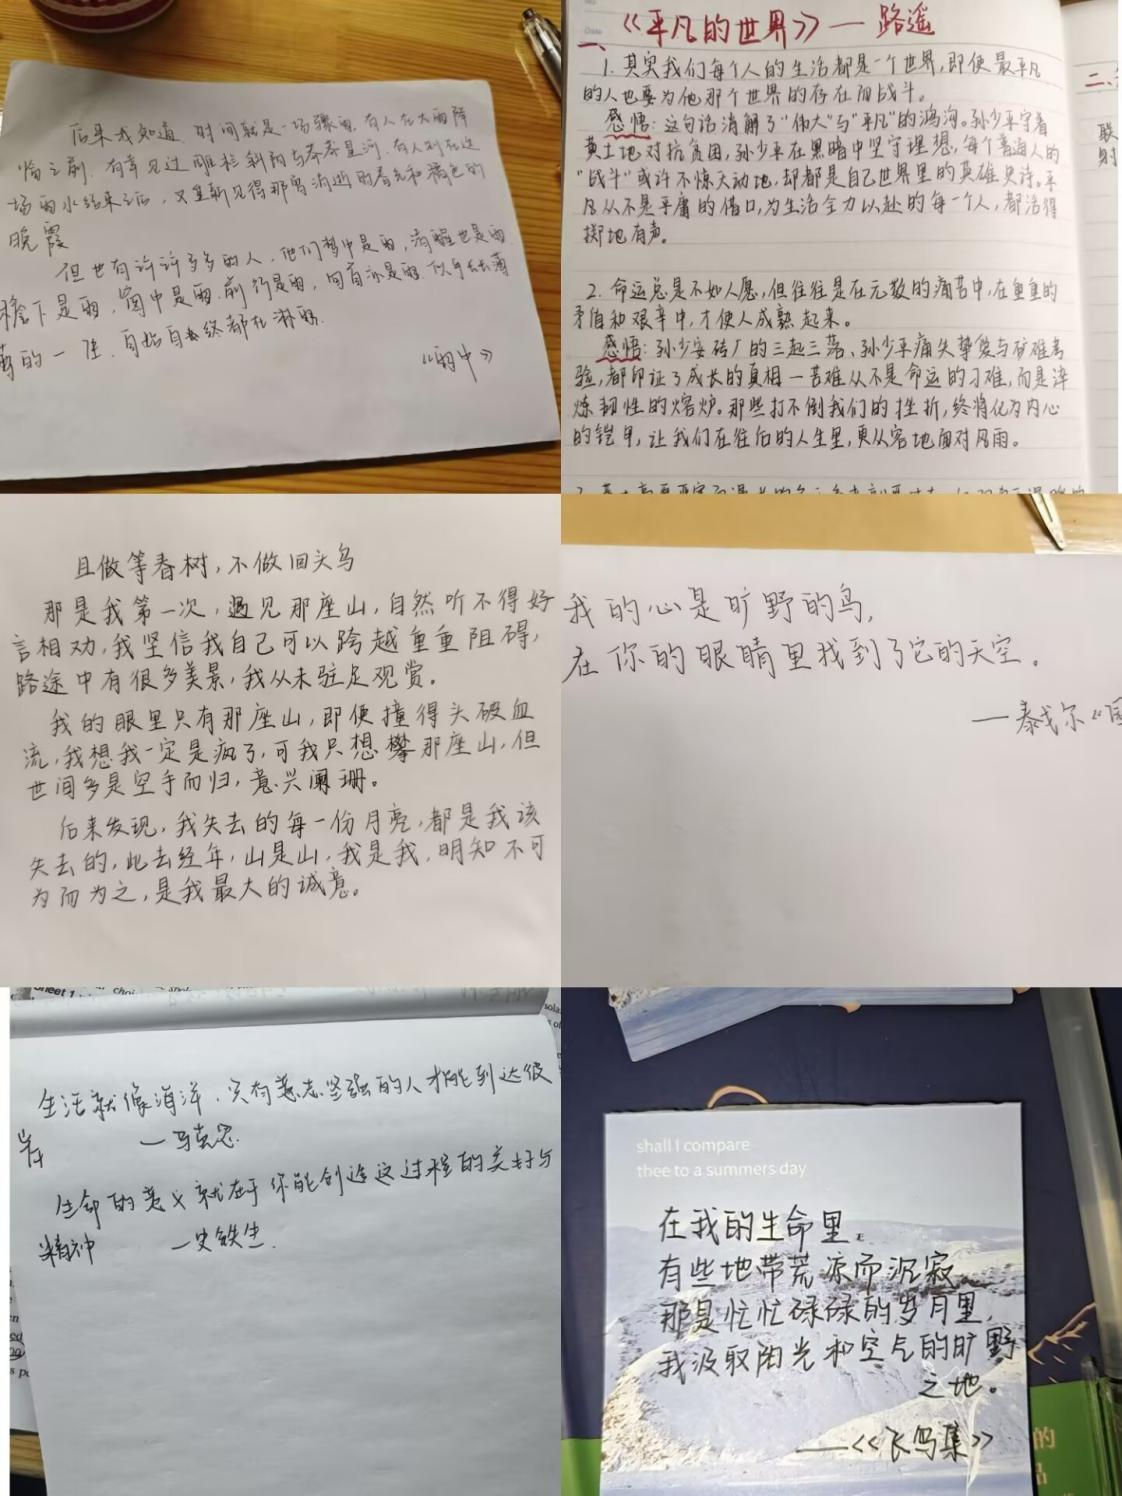 后来我知道，时间就是一场骤雨，有人在大雨降
临之前，有幸见过雕栏斜阳与朵朵星河，有人则在这
场雨水结束之后，又重新见得那鸟消逝的春光和褐色的
晚霞
但也有许许多多的人，他们梦中是雨，清醒也是雨
檐下是雨，窗中是雨，前行是雨，回首亦是雨，
的一生，自始自终都在淋雨
《雨中》
《平凡的世界》— 路遥
一、
1. 其实我们每个人的生活都是一个世界，即使最平凡
的人也要为他那个世界的存在而战斗。
感悟：这句话消解了"伟大"与"平凡"的鸿沟。孙少平守着
黄土地对抗贫困，孙少平在黑暗中坚守理想，每个普通人的
"战斗"或许不惊天动地，却都是自己世界里的英雄史诗。平
凡从不是平庸的借口，为生活全力以赴的每一个人，都活得
掷地有声。
2. 命运总是不如人愿，但往往是在无数的痛苦中，在重重的
矛盾和艰辛中，才使人成熟起来。
感悟：孙少安砖厂的三起三落、孙少平痛失挚爱与矿难考
验，都印证了成长的真相一苦难从不是命运的刁难，而是淬
炼韧性的熔炉。那些打不倒我们的挫折，终将化为内心
的铠甲，让我们在往后的人生里，更从容地面对风雨。
二、
联
射
且做等春树，不做回头鸟
那是我第一次，遇见那座山，自然听不得好
言相劝，我坚信我自己可以跨越重重阻碍，
路途中有很多美景，我从未驻足观赏。
我的眼里只有那座山，即使撞得头破血
流，我想我一定是疯了，可我只想攀那座山，但
世间多是空手而归，意兴阑珊。
后来发现，我失去的每一份月亮，都是我该
失去的，此去经年，山是山，我是我，明知不可
为而为之，是我最大的诚意。
我的心是旷野的鸟，
在你的眼睛里找到了它的天空。
—泰戈尔《园
Sheet 1
生活就像海洋，只有意志坚强的人才能到达彼
岸 —马克思
生命的意义就在于你能创造这过程的美好与
精神 —史铁生
shall I compare
thee to a summers day
在我的生命里，
有些地带荒凉而沉寂
那是忙忙碌碌的岁月里，
我汲取阳光和空气的旷野
之地。
——《飞鸟集》
的
品